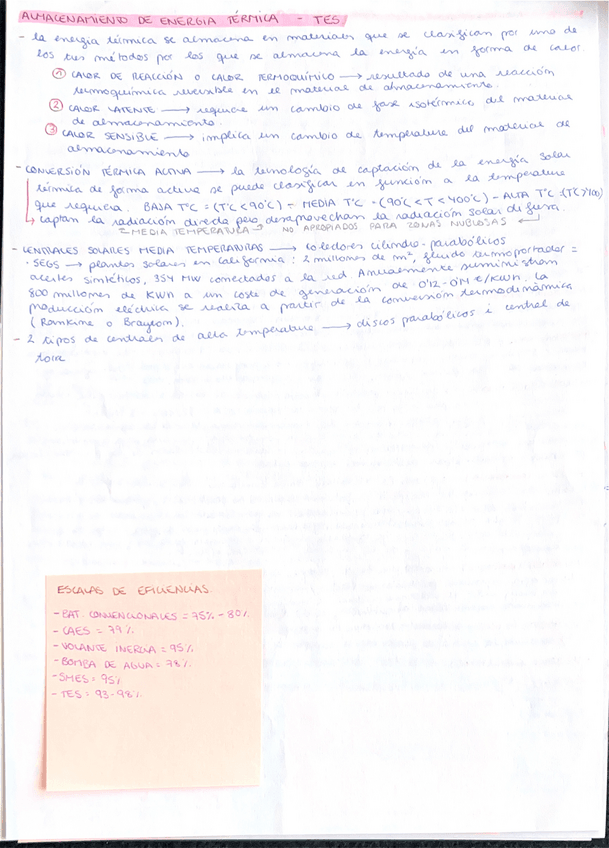 ALMACENAMIENTO DE ENERGIA TÉRMICA - TES
- la energía térmica se almacena en materiales que se clasifican por uno de
los tres métodos por los que se almacena la energía en forma de calor.
① CALOR DE REACCIÓN O CALOR TERMOQUÍMICO → resultado de una reacción
termoquímica reversible en el material de almacenamiento.
② CALOR LATENTE → requiere un cambio de fase isotérmica del material
de almacenamiento.
③ CALOR SENSIBLE → implica un cambio de temperatura del material de
almacenamiento
- CONVERSIÓN TÉRMICA ACTIVA → la tecnología de captación de la energía solar
térmica de forma activa se puede clasificar en función a la temperatura
que requiera. BAJA TªC = (TªC < 90ºC) - MEDIA TªC - (90ºC < T < 400ºC) - ALTA TªC
↳ captan la radiación directa pero desaprovechan la radiación solar difusa.
MEDIA TEMPERATURA → NO APROPIADOS PARA ZONAS NUBLOSAS
- CENTRALES SOLARES MEDIA TEMPERATURAS → colectores cilindro-parabólicos
· SEGS → plantas solares en California: 2 millones de m², fluido termoportador =
aceites sintéticos, 354 MW conectados a la red. Anualmente suministran
800 millones de KWh a un coste de generación de 0'12-0'14 €/KWh. La
producción eléctrica se realiza a partir de la conversión termodinámica
(Rankine o Brayton).
- 2 tipos de centrales de alta temperatura → discos parabólicos i central de
torre
ESCALAS DE EFICIENCIAS
- BAT. CONVENCIONALES = 75% - 80%
- CAES = 79%
- VOLANTE INERCIA = 95%
- BOMBA DE AGUA = 78%
- SMES = 95%
- TES = 93-98%